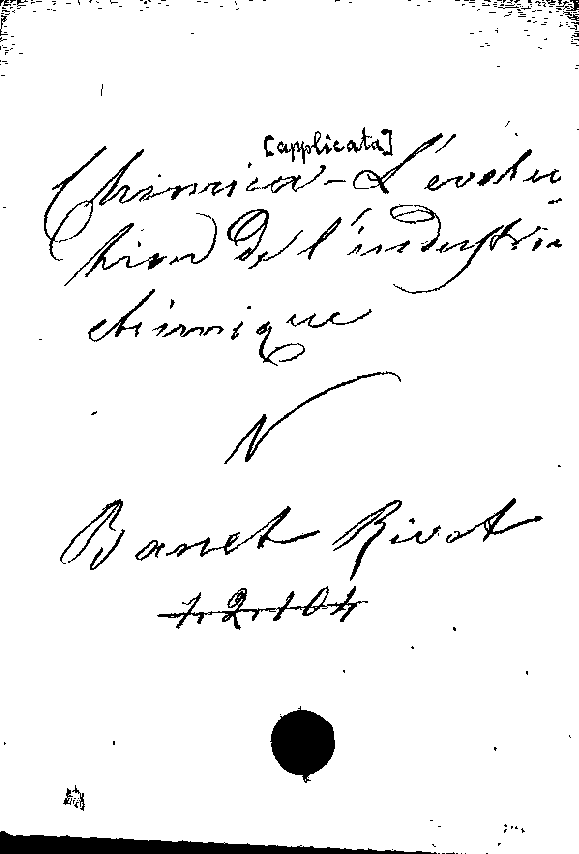 [applicata]
Chimica - L'evolu
tion de l'industrie
chimique
V
Banet Rivet